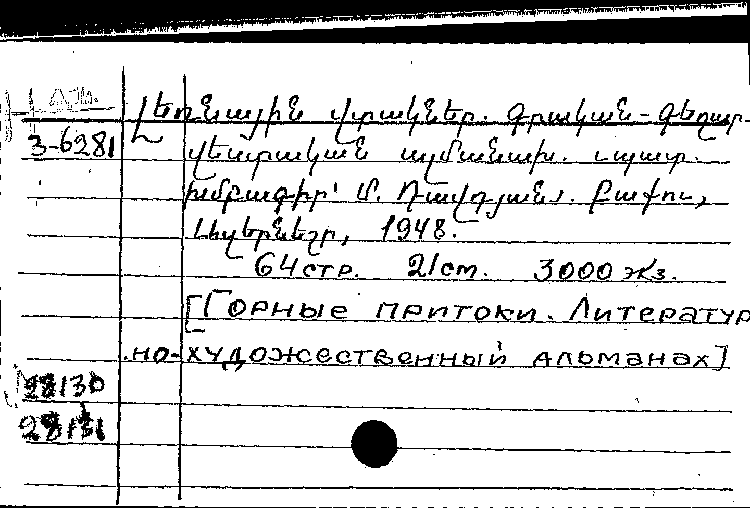 Լեռնային վտակներ. գրական-գեղար-
3-6281 վեստական ալմանախ. պատ.
խմբագիր՝ Մ. Դավթյան. Բաքու,
1948.
64 стр. 21 см. 3000 экз.
[Горные притоки. Литератур
но-художественный альманах]
28130
28131